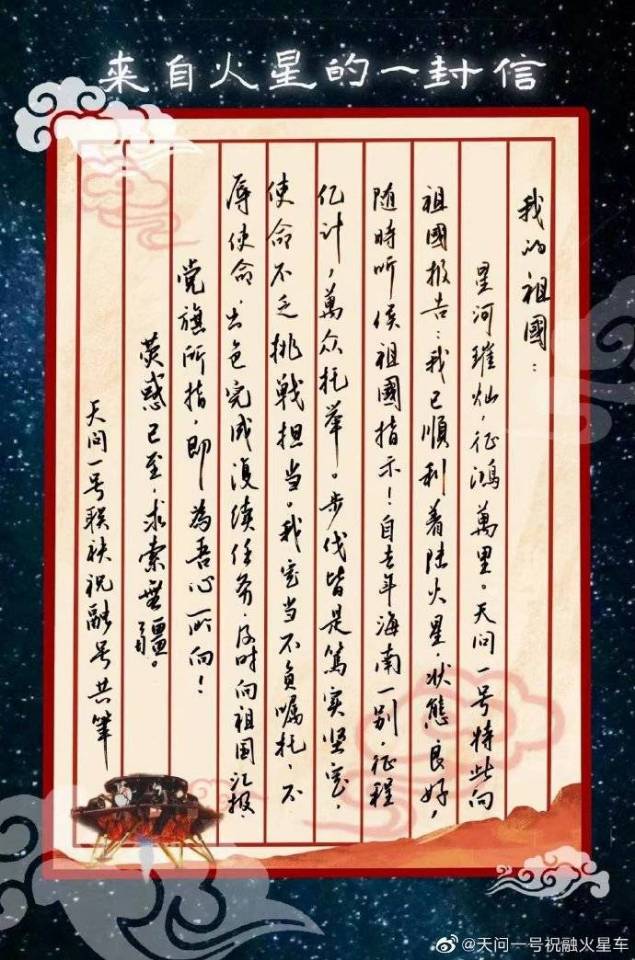 来自火星的一封信
我的祖國：
星河璀灿，征鴻萬里。天问一号特此向
祖國报告：我已順利着陆火星，状態良好，
随時听候祖國指示！自去年海南一别，征程
亿计，萬众托举。步伐皆是篤实坚定，
使命不乏挑戦担当。我定当不负嘱托，不
辱使命，出色完成後续任务，及时向祖国汇报
党旗所指，即為吾心所向！
荧惑已至，求索無疆。
天问一号联袂祝融号共筆
@天问一号祝融火星车